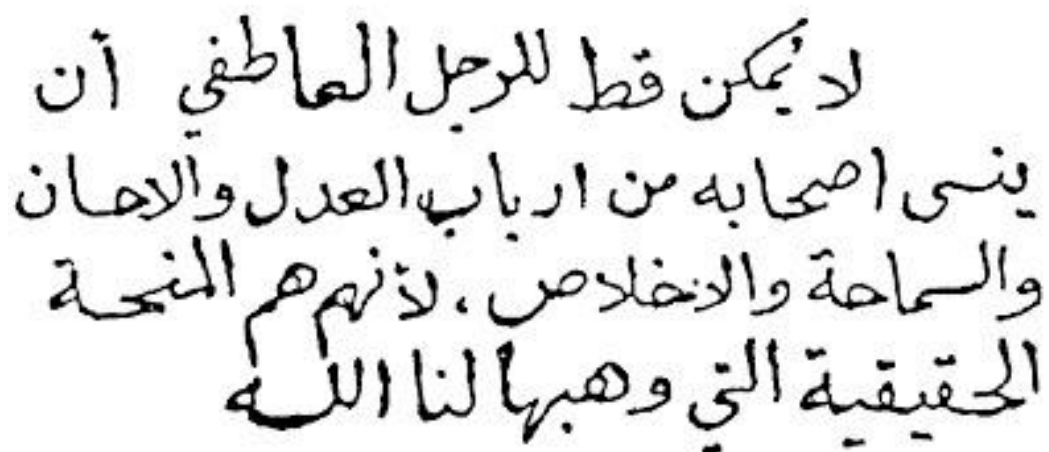 لا يُمكن قط للرجل العاطفي أن
ينسى اصحابه من ارباب العدل والاحسان
والسماحة والاخلاص، لأنهم هم المنحة
الحقيقية التي وهبها لنا الله